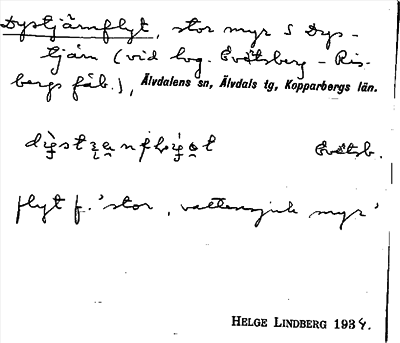 Dystjärnflyt, stor myr S Dys-
tjärn (vid bog. Evertsberg - Ris-
bergs fäb.), Älvdalens sn, Älvdals tg, Kopparbergs län.
Evertsb.
flyt f. 'stor, vattensjuk myr'
HELGE LINDBERG 1934.